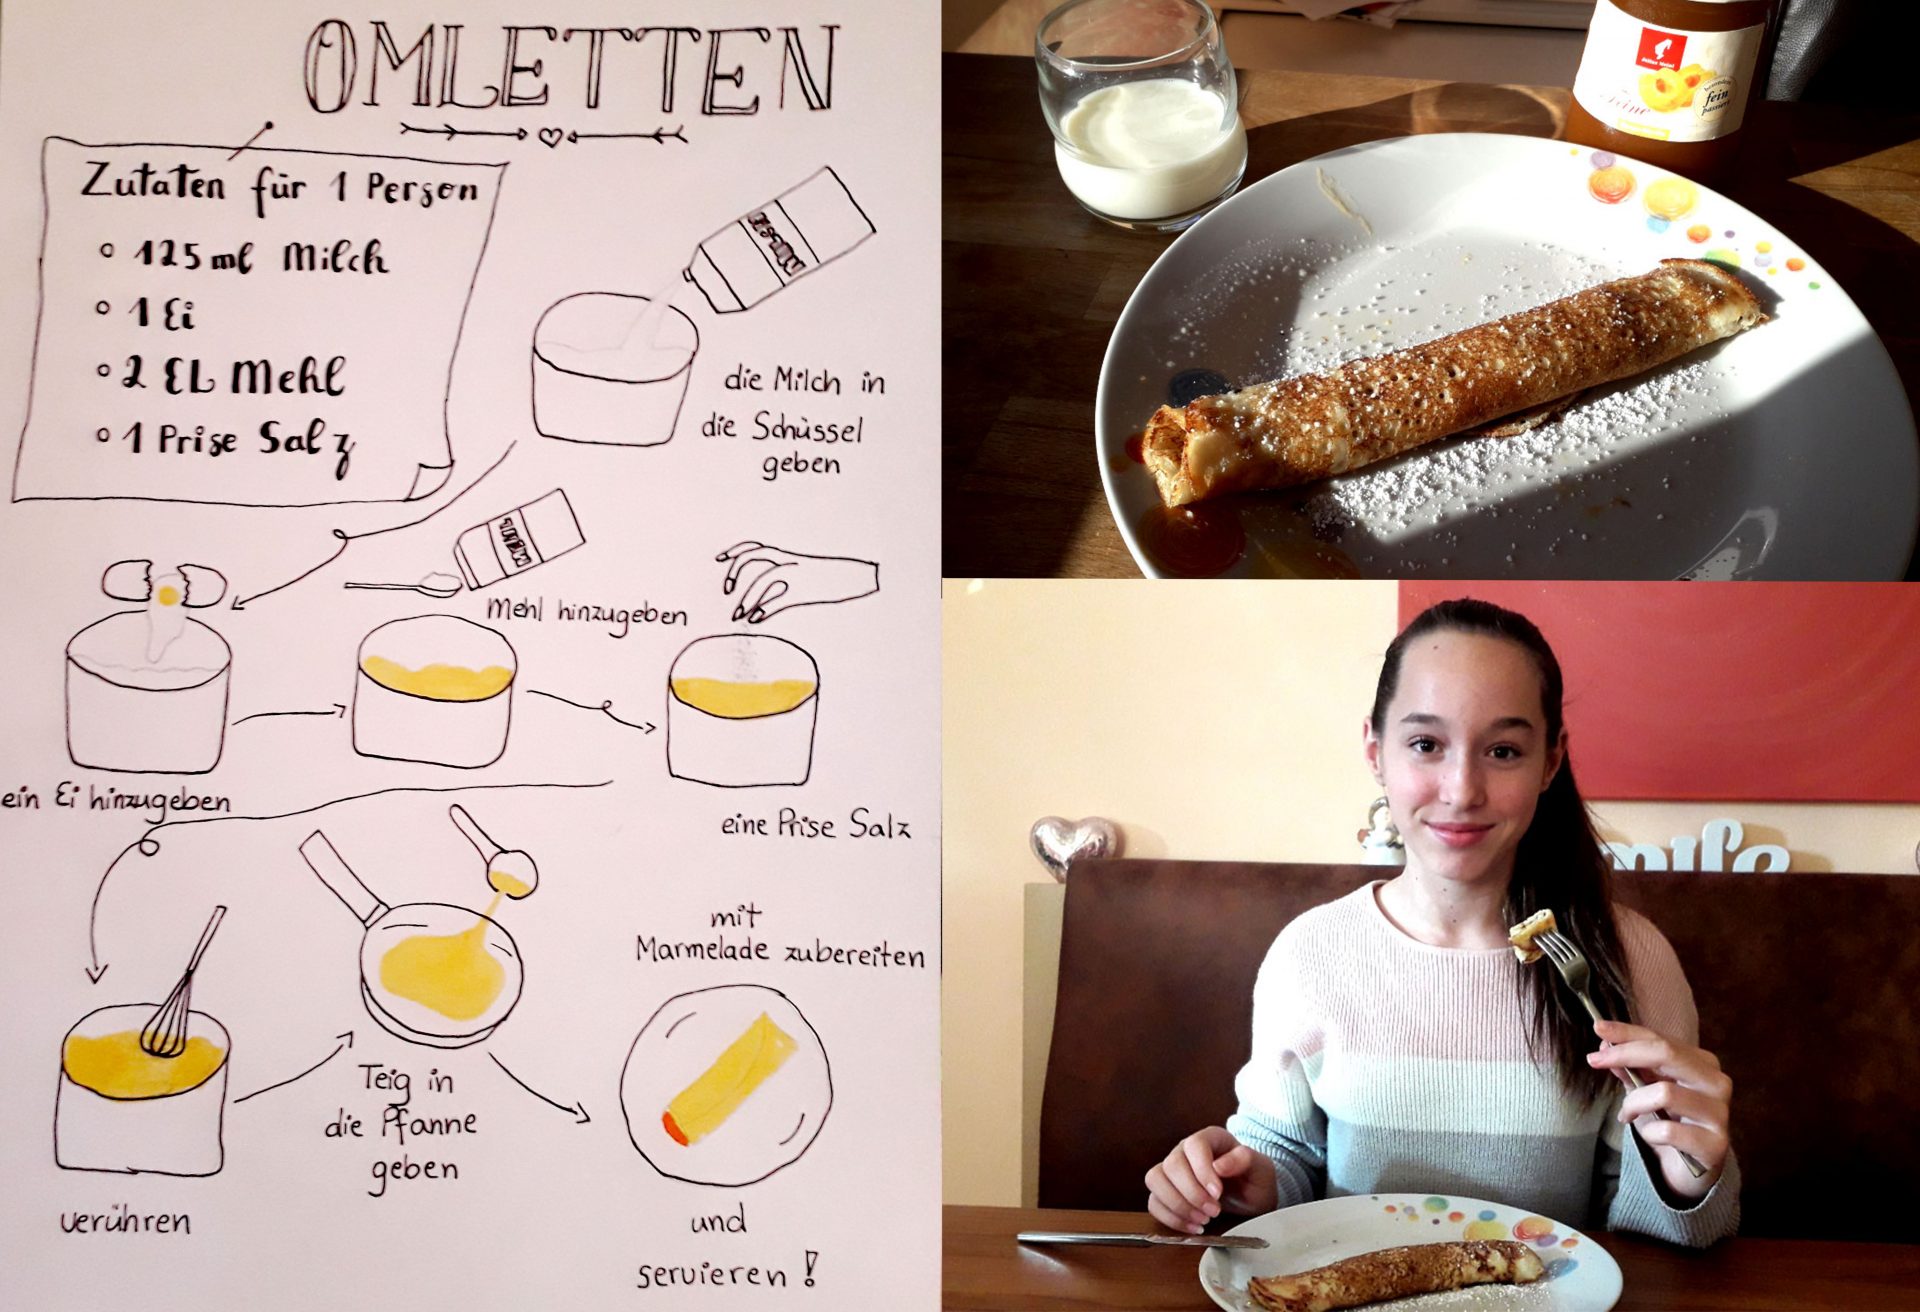 OMLETTEN
Zutaten für 1 Person
125 ml Milch
1 Ei
2 EL Mehl
1 Prise Salz
Milch
die Milch in
die Schüssel
geben
Mehl
Mehl hinzugeben
ein Ei hinzugeben
eine Prise Salz
verühren
Teig in
die Pfanne
geben
mit
Marmelade zubereiten
und
servieren!
Julius Meinl
Feine
fein
passiert